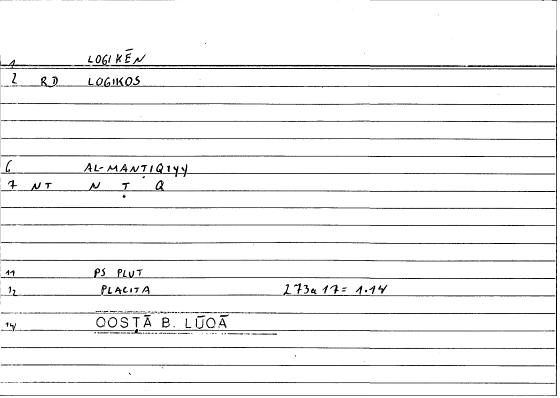 1 LOGIKĒN
2 RD LOGIKOS
6 AL-MANṬIQIYY
7 NT N Ṭ Q
11 PS PLUT
12 PLACITA 273a17=1.14
14 QOSṬĀ B. LŪQĀ